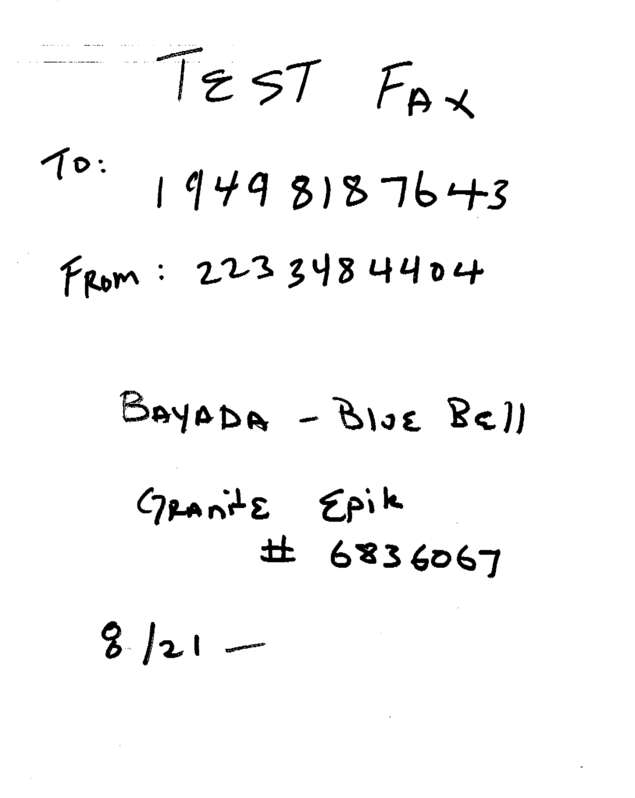 TEST FAX
TO:
19498187643
FROM: 2233484404
BAYADA - BLUE BELL
GRANITE EPIK
# 6836067
8/21 —